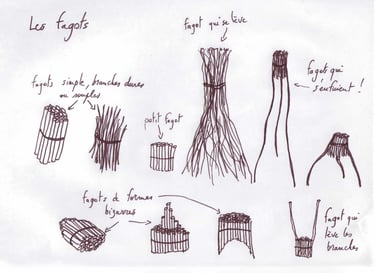 Les fagots
fagot qui se lève
fagots simple, branches dures
ou souples
petit fagot
fagot qui
s'enfuient !
fagots de formes
bizarres
fagot qui
lève les
branches